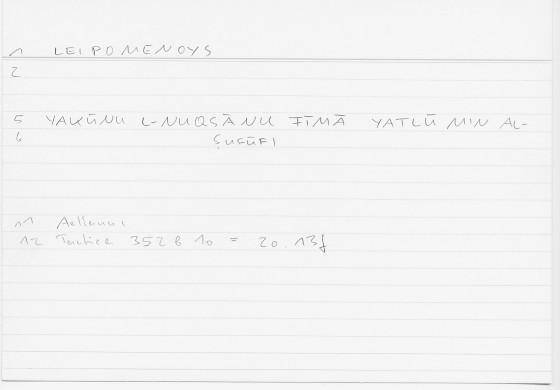 1 LEIPOMENOYS
2
5 YAKŪNU L-NUQṢĀNU FĪMĀ YATLŪ MIN AL-
6 ṢUFŪFI
11 Aelianus
12 Tactica 352 B 10 = 20.13f